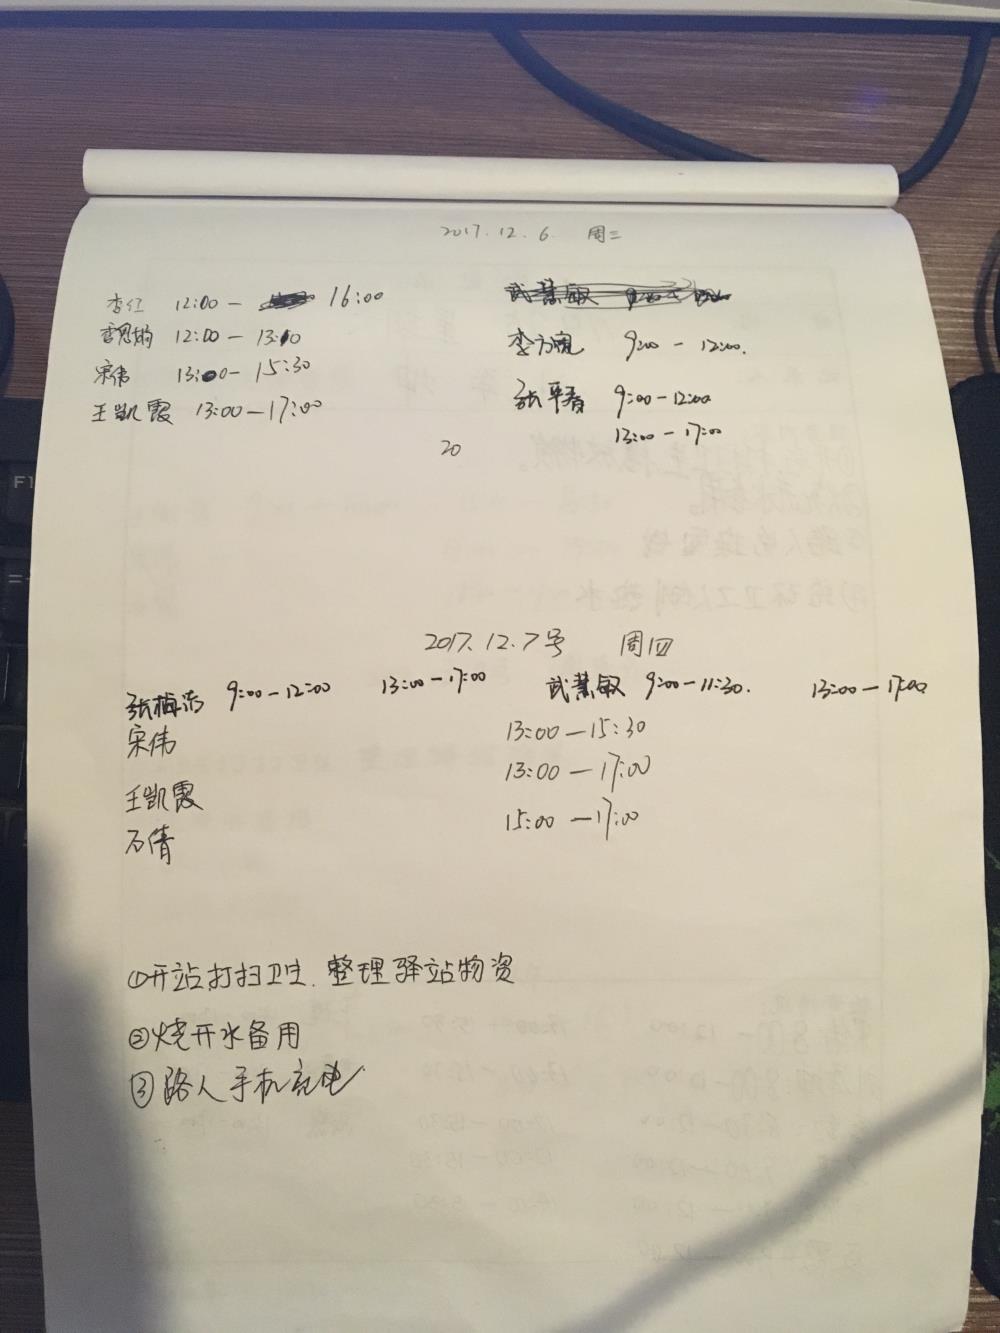 2017.12.6 周三
李红 12:00 — 16:00
12:00 — 13:10
李方亮 9:00 — 12:00.
宋伟 13:00 — 15:30
张平香 9:00 — 12:00
王凯霞 13:00 — 17:00
13:00 — 17:00
20
2017.12.7号 周四
张梅 9:00 — 12:00 13:00 — 17:00 武慧敏 9:00 — 11:30. 13:00 — 17:00
宋伟 13:00 — 15:30
王凯霞 13:00 — 17:00
石倩 15:00 — 17:00
①开站,打扫卫生.整理驿站物资
②烧开水备用
③路人手机充电